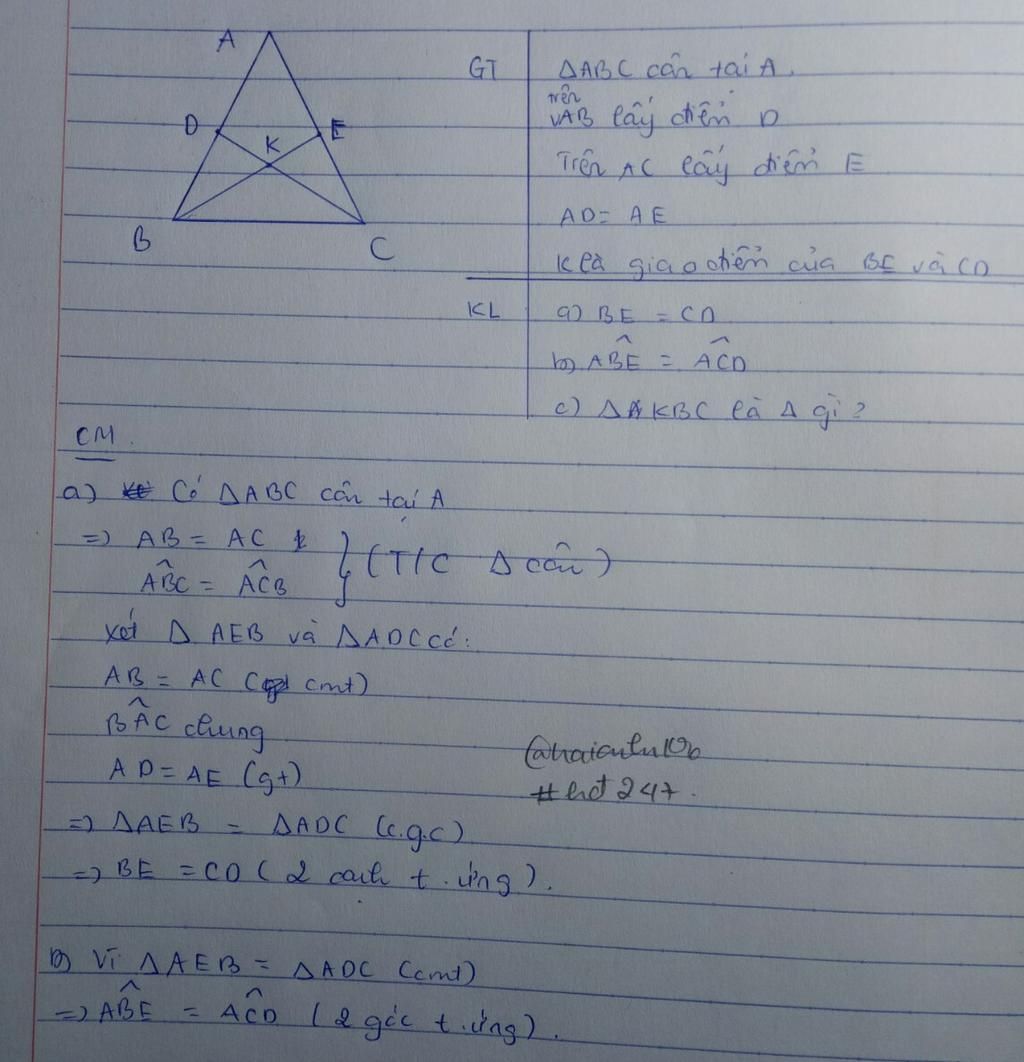 A
D
E
K
B
C
GT
ΔABC cân tại A.
trên
AB lấy điểm D
Trên AC lấy điểm E
AD = AE
K là giao điểm của BE và CD
KL
a) BE = CD
b) ABÊ = AĈD
c) ΔKBC là Δ gì?
CM.
a) Có ΔABC cân tại A
=> AB = AC
AB̂C = AĈB
} (T/C Δ cân)
Xét Δ AEB và ΔADC có:
AB = AC (cmt)
BÂC chung
AD = AE (gt)
=> ΔAEB = ΔADC (c.g.c)
=> BE = CD (2 cạnh t.ứng).
b) Vì ΔAEB = ΔADC (cmt)
=> AB̂E = AĈD (2 góc t.ứng).